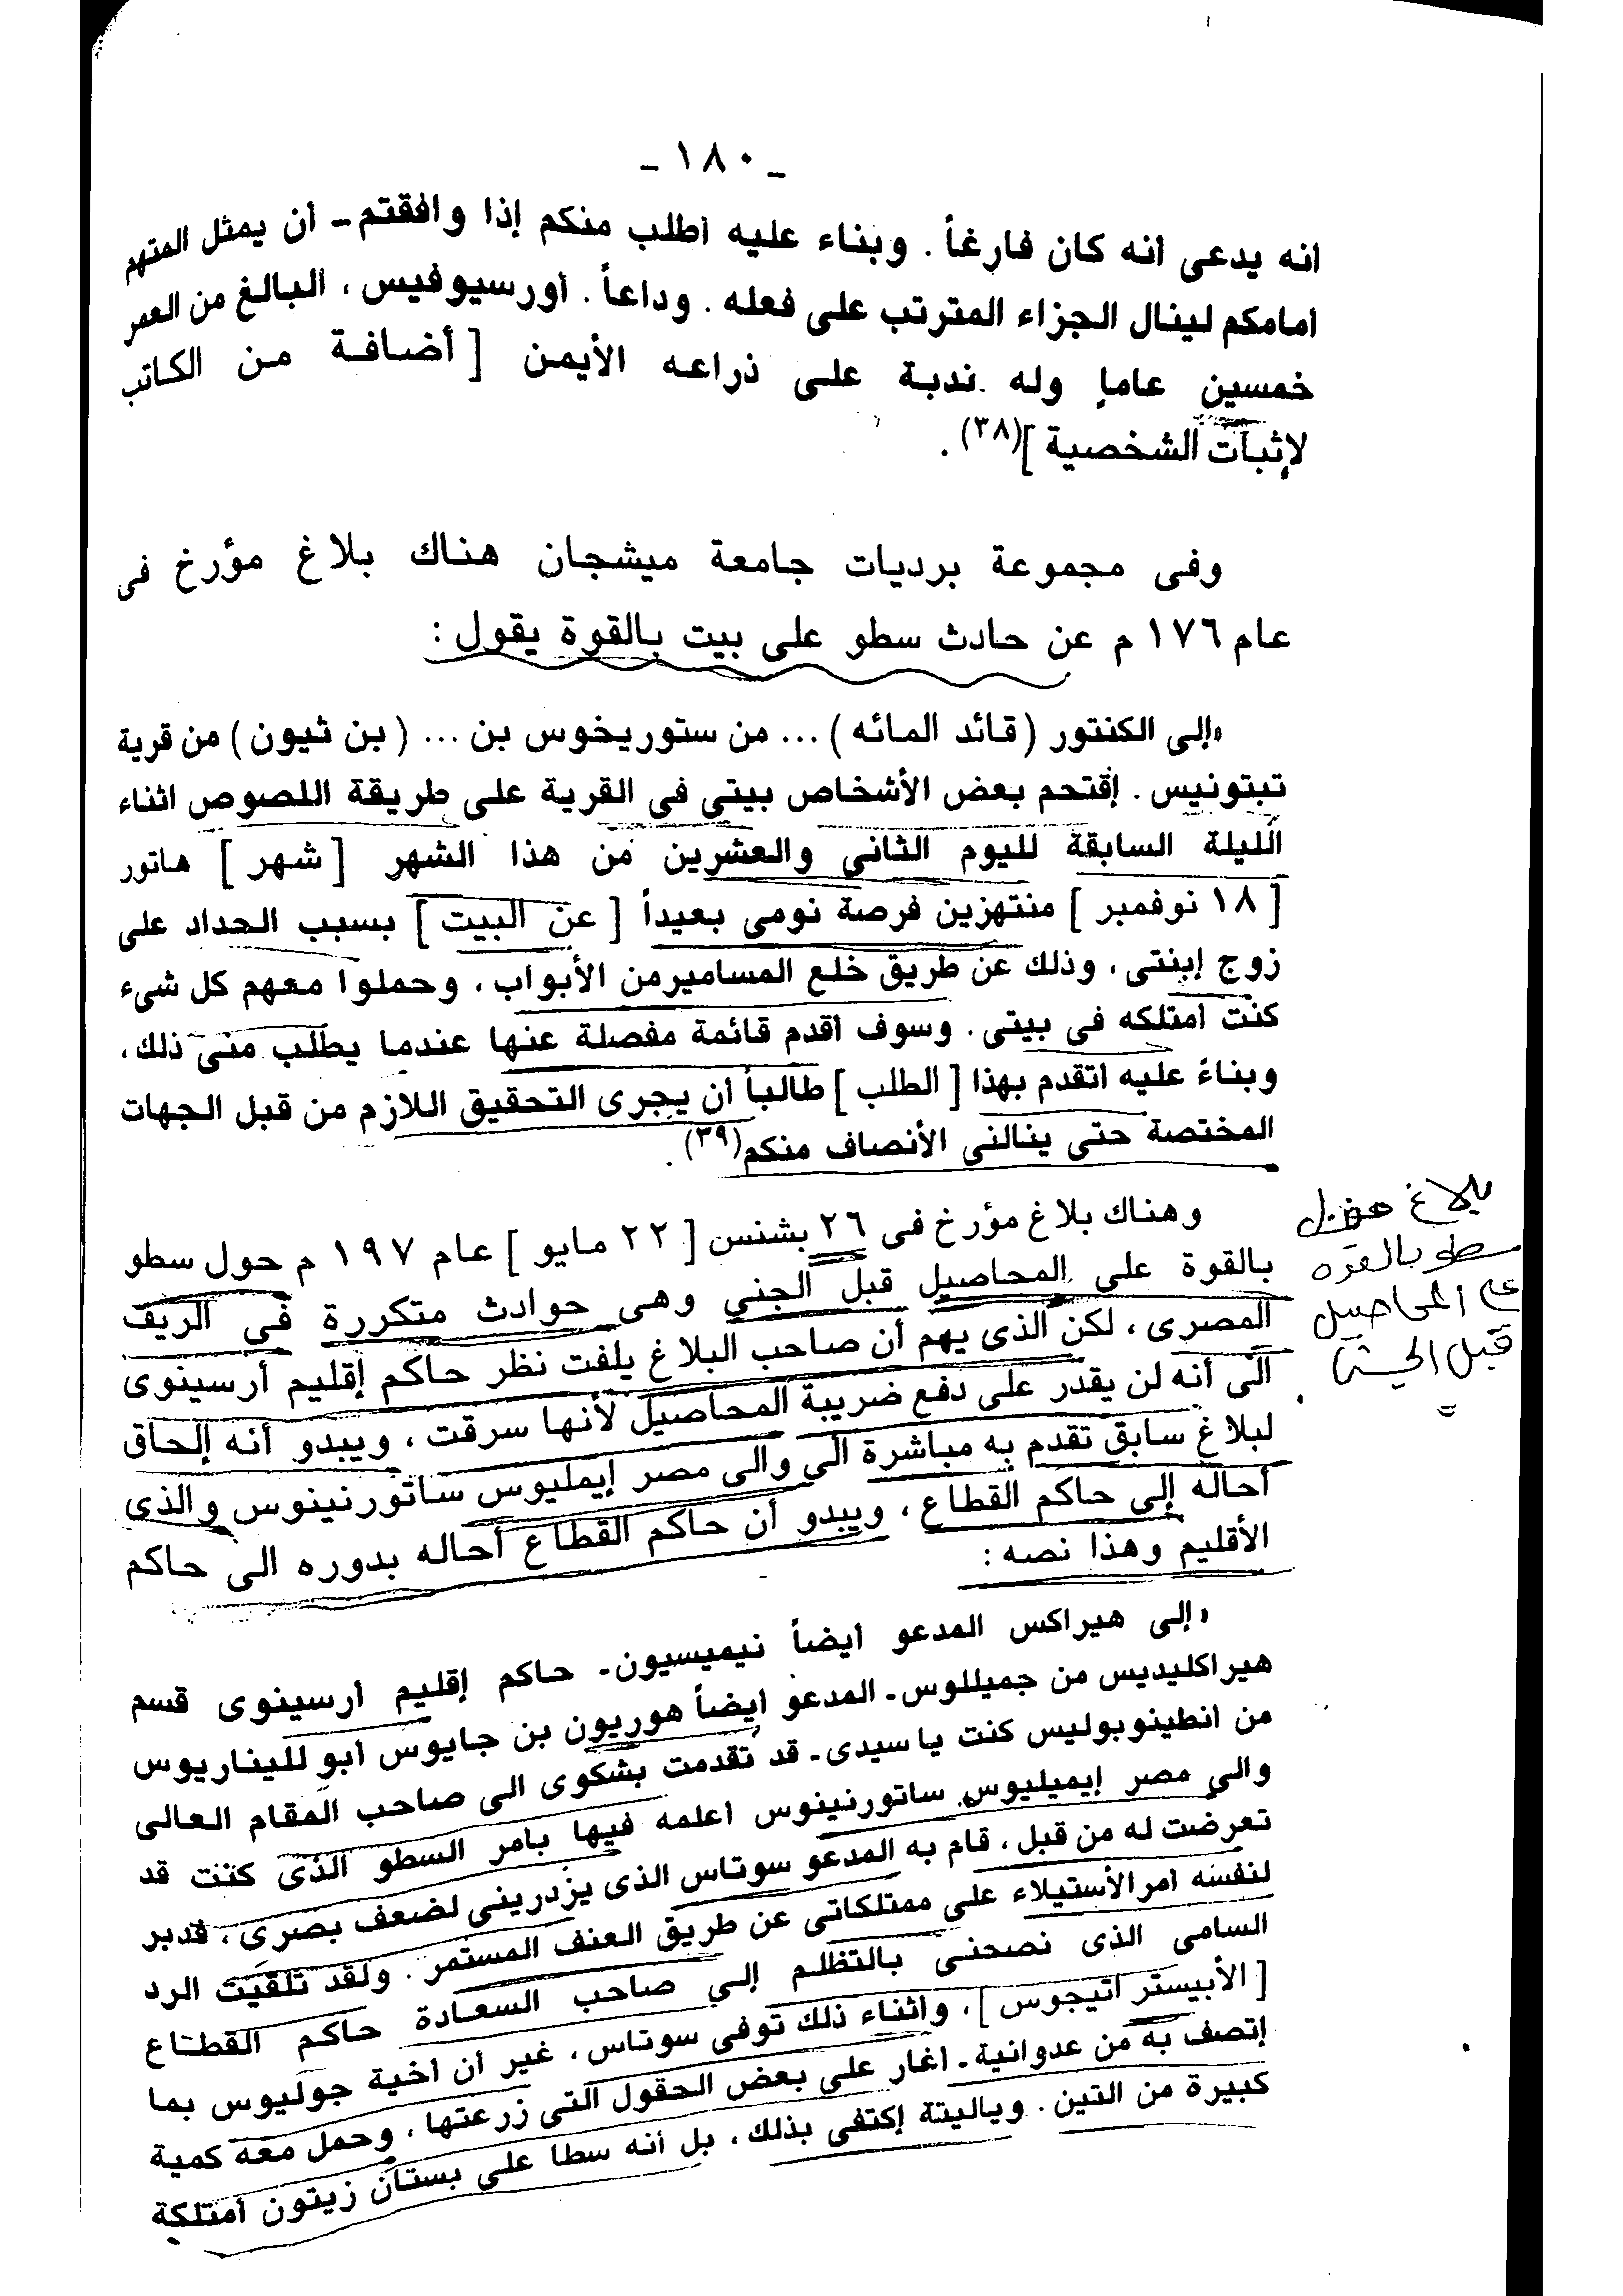 ـ ١٨٠ ـ
انه يدعى انه كان فارغاً . وبناء عليه اطلب منكم إذا وافقتم ـ أن يمثل المتهم
امامكم لينال الجزاء المترتب على فعله . وداعاً . أورسيوفيس ، البالغ من العمر
خمسين عاما وله ندبة على ذراعه الأيمن [ أضافة من الكاتب
لإثبات الشخصية ](٣٨) .
وفى مجموعة برديات جامعة ميشجان هناك بلاغ مؤرخ فى
عام ١٧٦ م عن حادث سطو على بيت بالقوة يقول :
«إلى الكنتور ( قائد المائه ) ... من ستوريخوس بن ... ( بن ثيون ) من قرية
تبتونيس . إقتحم بعض الأشخاص بيتى فى القرية على طريقة اللصوص اثناء
الليلة السابقة لليوم الثانى والعشرين من هذا الشهر [ شهر ] هاتور
[ ١٨ نوفمبر ] منتهزين فرصة نومى بعيداً [ عن البيت ] بسبب الحداد على
زوج إبنتى ، وذلك عن طريق خلع المسامير من الأبواب ، وحملوا معهم كل شىء
كنت امتلكه فى بيتى . وسوف أقدم قائمة مفصلة عنها عندما يطلب منى ذلك ،
وبناءً عليه اتقدم بهذا [ الطلب ] طالباً أن يجرى التحقيق اللازم من قبل الجهات
المختصة حتى ينالنى الأنصاف منكم(٣٩) .
وهناك بلاغ مؤرخ فى ٢٦ بشنس [ ٢٢ مايو ] عام ١٩٧ م حول سطو
بالقوة على المحاصيل قبل الجني وهى حوادث متكررة فى الريف
المصرى ، لكن الذى يهم أن صاحب البلاغ يلفت نظر حاكم إقليم أرسينوى
الى أنه لن يقدر على دفع ضريبة المحاصيل لأنها سرقت ، ويبدو أنه إلحاق
لبلاغ سابق تقدم به مباشرة الى والى مصر إيمليوس ساتورنينوس والذى
أحاله إلى حاكم القطاع ، ويبدو أن حاكم القطاع أحاله بدوره الى حاكم
الأقليم وهذا نصه :
بلاغ
سطو بالقوه
على المحاصيل
قبل
«إلى هيراكس المدعو أيضاً نيميسيون ـ حاكم إقليم أرسينوى قسم
هيراكليديس من جميللوس ـ المدعو أيضاً هوريون بن جايوس أبو لليناريوس
من انطينوبوليس كنت ياسيدى ـ قد تقدمت بشكوى الى صاحب المقام العالى
والي مصر إيميليوس ساتورنينوس اعلمه فيها بامر السطو الذى كنت قد
تعرضت له من قبل ، قام به المدعو سوتاس الذى يزدرينى لضعف بصرى ، فدبر
لنفسه امر الأستيلاء على ممتلكاتى عن طريق العنف المستمر . ولقد تلقيت الرد
السامى الذى نصحنى بالتظلم إلي صاحب السعادة حاكم القطاع
[ الأبيستر اتيجوس ] ، واثناء ذلك توفى سوتاس ، غير أن أخية جوليوس بما
إتصف به من عدوانية ـ اغار على بعض الحقول التى زرعتها ، وحمل معه كمية
كبيرة من التين . وياليتة إكتفى بذلك ، بل أنه سطا على بستان زيتون أمتلكة